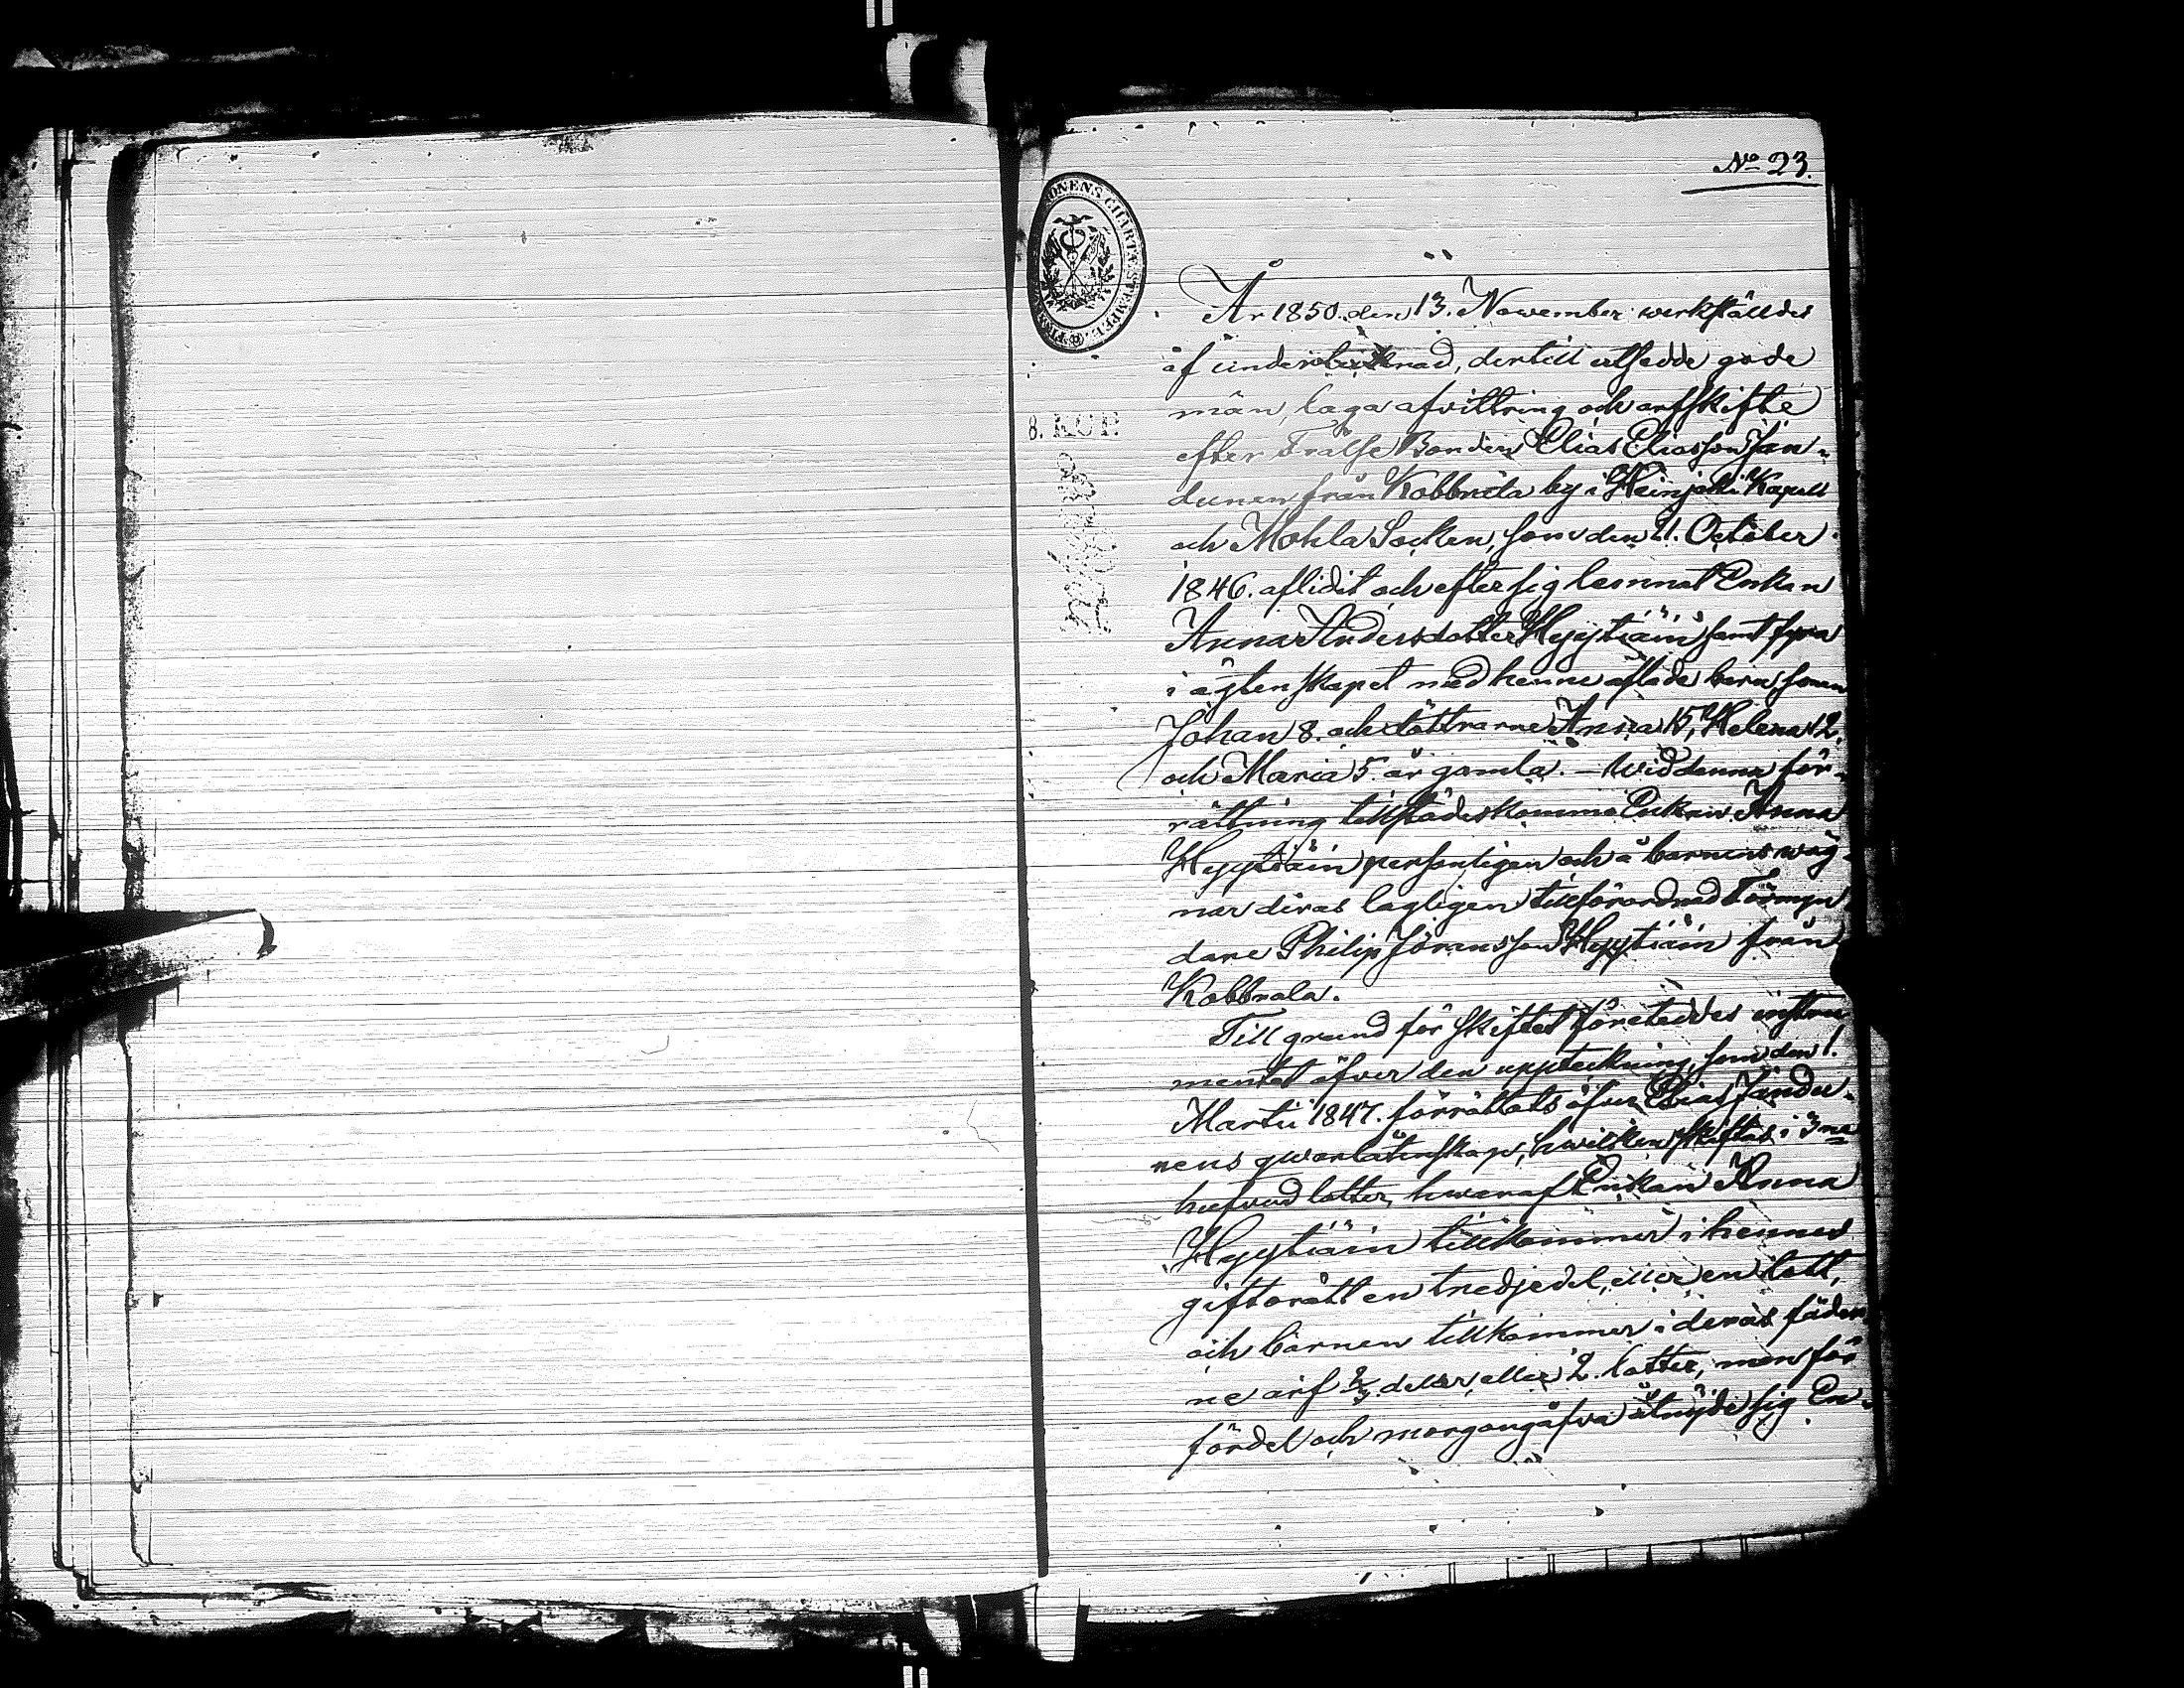 No 23.
8. KOP.
År 1850. den 13. November werkställdes
af undertecknad, dertill utsedde gode
män, laga afvittring och arfskifte
efter Frälse Bonden Elias Eliasson Jän-
dunen från Kobbrala by i Heinjoki Kapell
och Mohla Socken, som den 21. October
1846. aflidit och efter sig lemnat Enkan
Anna Andersdotter Hyytiäin samt fyra
i ägtenskapet med henne aflade barn, sonen
Johan 8. och döttrarne Anna 15, Helena 12,
och Maria 5. år gamla. – Wid denna för-
rättning tillstädeskommo Enkan Anna
Hyytiäin personligen och å barnens wäg-
nar deras lagligen tillförordnad Förmyn
dare Philip Göransson Hyytiäin från
Kobbrala.
Till grund för skiftet företeddes instru
mentet öfver den uppteckning, som den 1.
Martii 1847. förrättats öfver Elias Jändu-
nens qwarlåtenskap, hwilken skiftas i 3ne
hufvudlotter, hwaraf Enkan Anna
Hyytiäin tillkommer i hennes
giftorätt en tredjedel, eller en lott,
och barnen tillkommer i deras fäder
ne arf 2/3 delar, eller 2. lotter, men för
fördel och morgongåfva åtnöjde sig En-